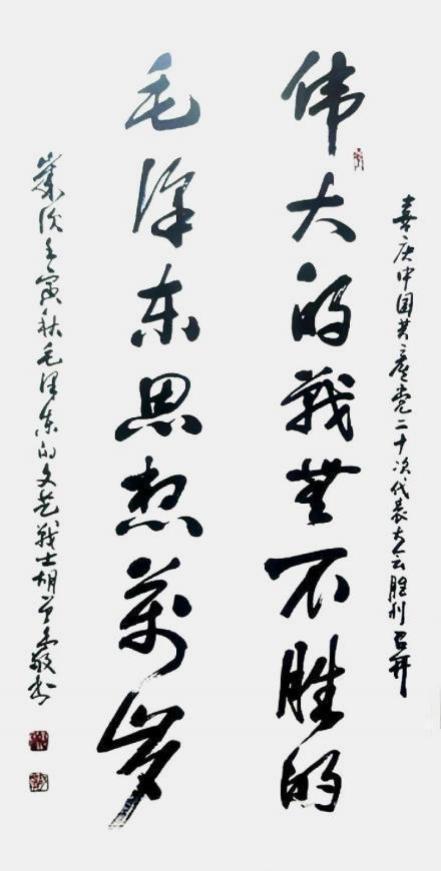 喜庆中国共產党二十次代表大会胜利召开
伟大的戰無不胜的
毛泽东思想萬岁
歲次壬寅秋毛泽东的文艺戰士胡敬书